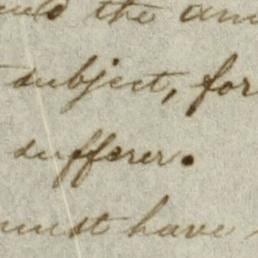 the
subject, for
sufferer.
must have